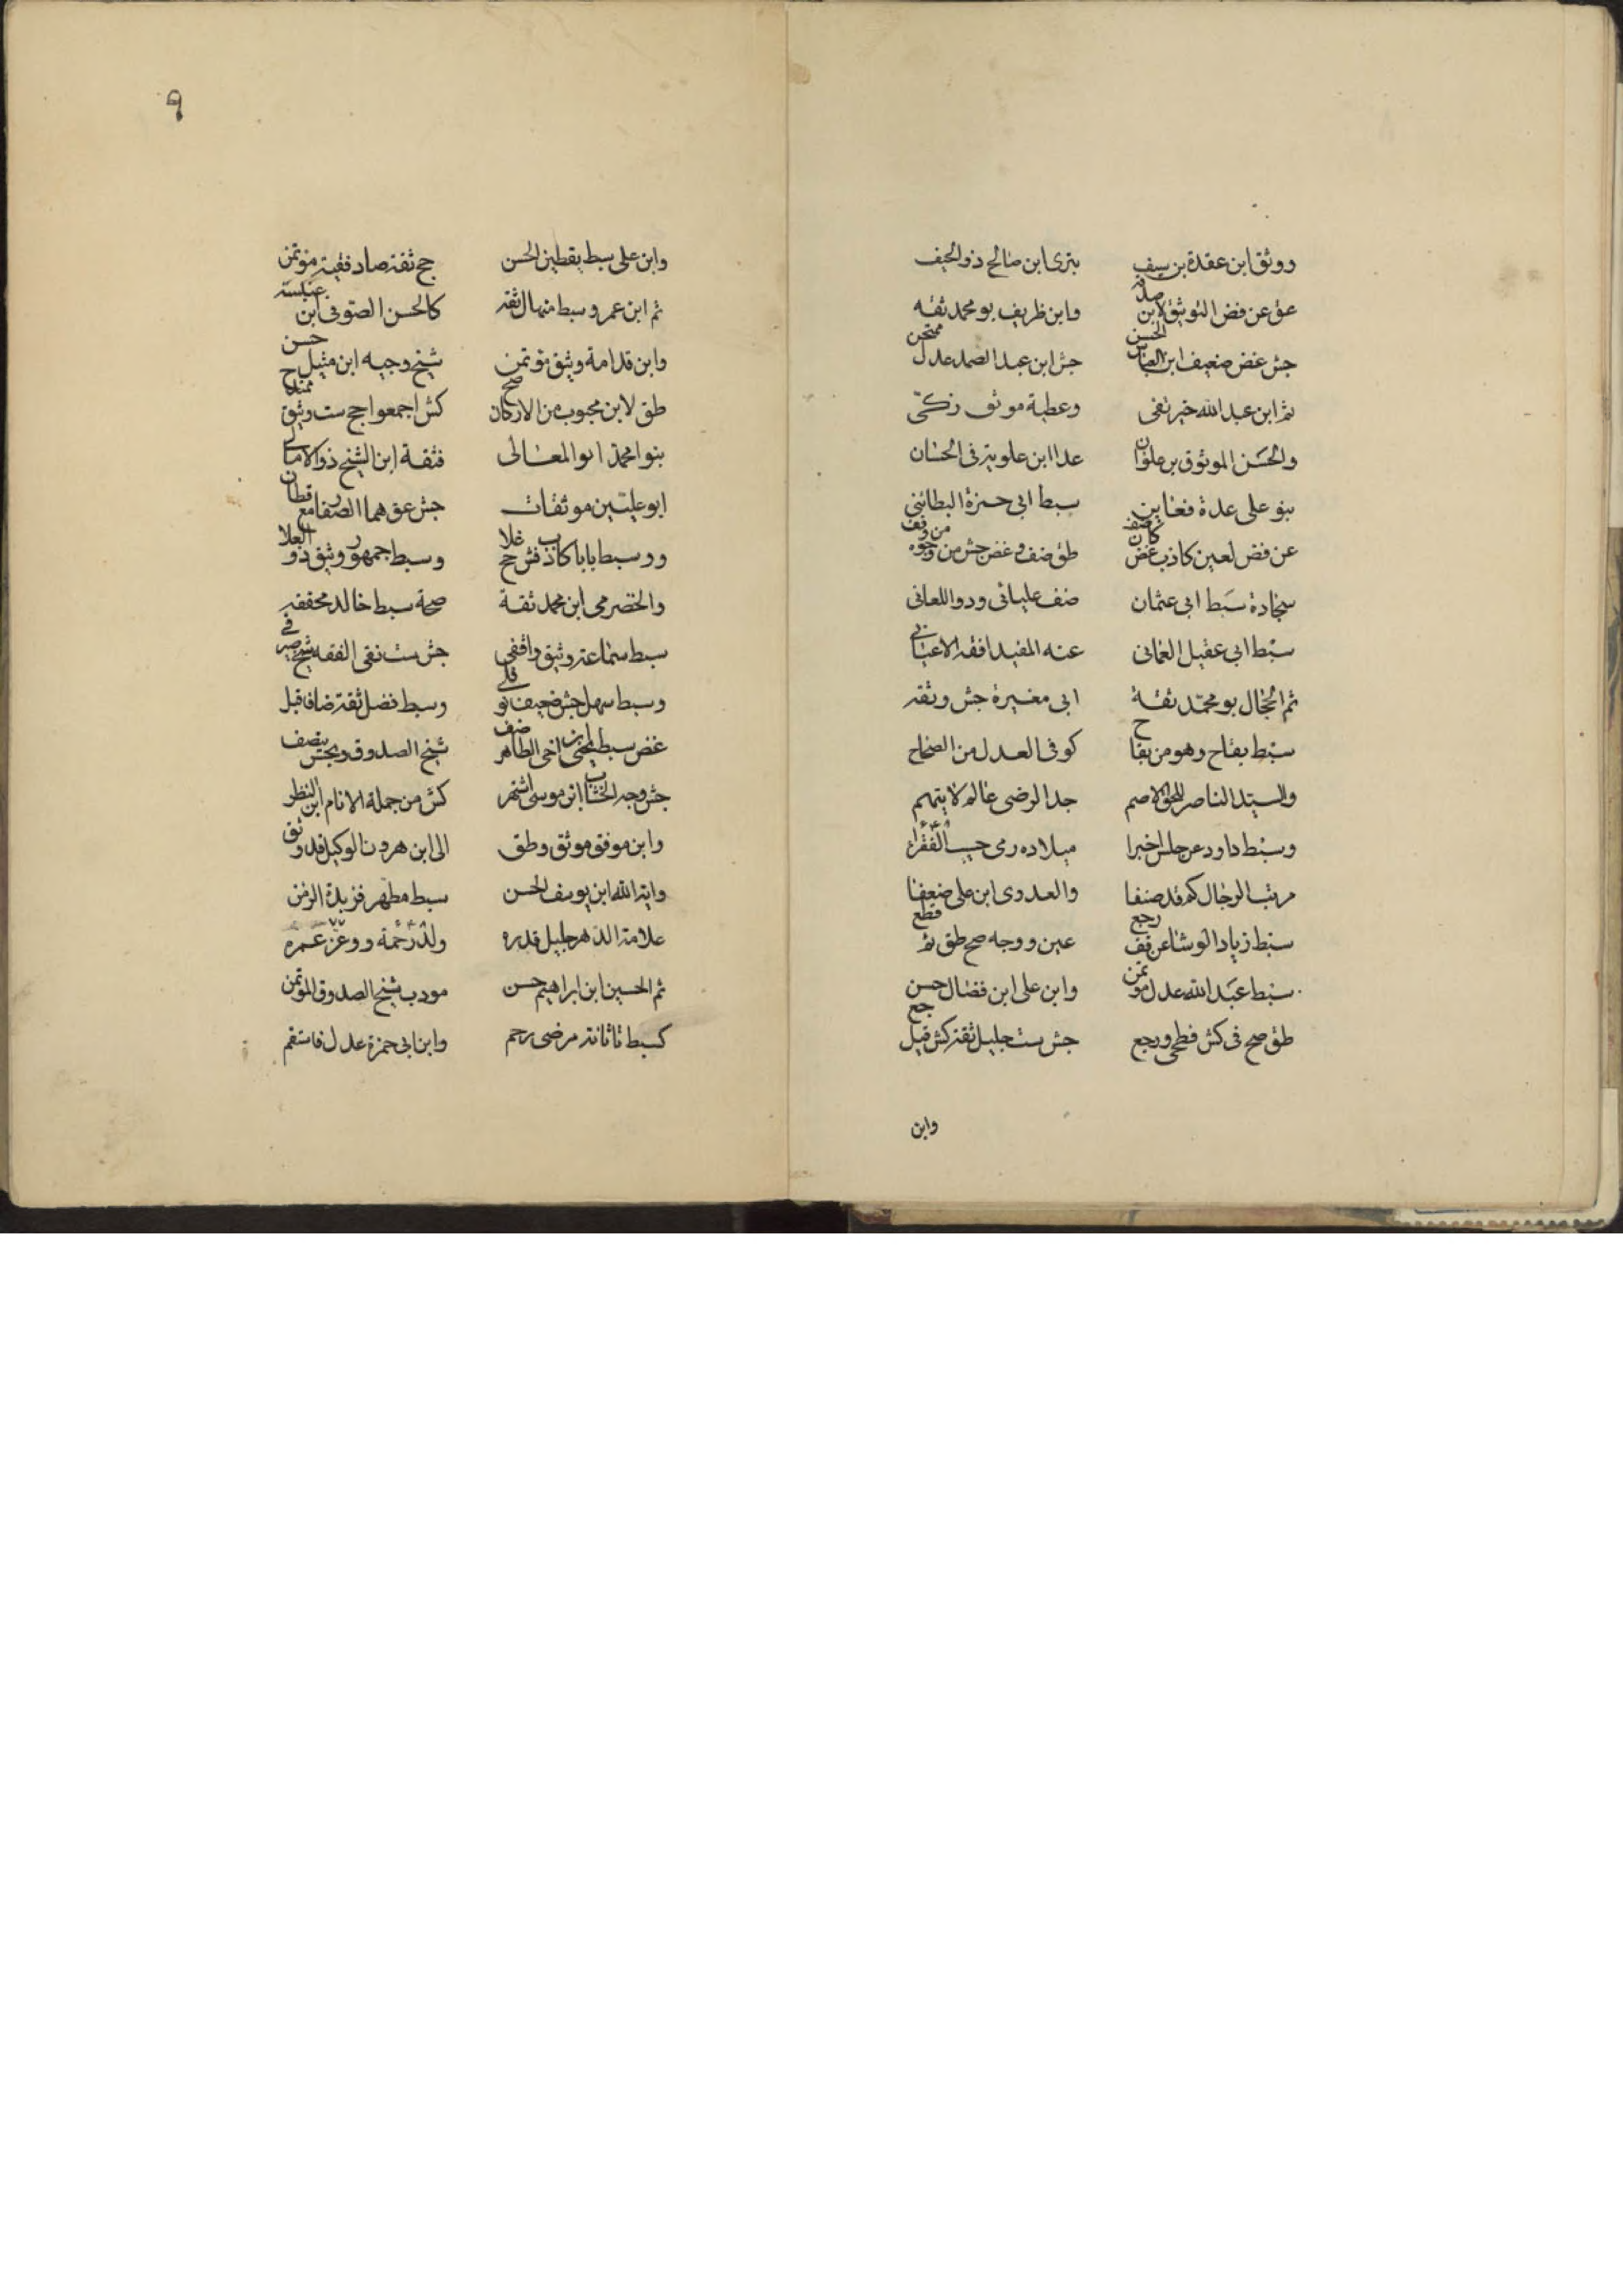 ووثق ابن عقدة بن سيف بتري ابن صالح ذو الحيف
عق عن فض التوثيق لابن صدقه وابن ظريف بو محمد ثقه
جش غض ضعيف ابن العباس الحسن جش ابن عبد الصمد عدل ممتحن
ثم ابن عبد الله خير تقي وعطية موثق زكي
والحسن الموثوق بن علوان عدا ابن علوية في الحسان
بنو علي عدة فعاين سبط ابي حمزة البطائني
عن فض لعين كاذب غض كان ضف طق ضف وغض جش من وجوه من وقف
سجادة سبط ابي عثمان ضف عليائي وذو اللعان
سبط ابي عقيل العماني عنه المفيد افقه الاعيان
ثم الحجال بو محمد ثقة ابي مغيرة جش وثقه
سبط بقاح وهو من بقاح كوفي العدل من الصحاح
والسيد الناصر للحق الاصم جد الرضي عالم لا يتهم
وسبط داود عن جلس اخبرا ميلاده رمى حبيب الفقرا
مرتب الرجال كم قد صنفا والعدوي ابن علي ضعفا
سبط زياد الوشا عن قف رجع عين ووجه صح طق ثم قطع
سبط عبد الله عدل موتمن وابن علي ابن فضال حسن
طق صح في كش فطحي ورجع جش ست جليل ثقة كش قيل جع
وابن
٩
وابن علي سبط يقطين الحسن جح ثقة صاد فقيه موتمن
ثم ابن عمرو سبط منهال ثقة كالحسن الصوفي ابن عنبسة
وابن قدامة وثيق موتمن شيخ وجيه ابن متيل حسن
طق لابن محبوب من الاركان صح كش اجمعوا جح ست وثيق
بنوا محمد ابو المعالي فثقة ابن الشيخ ذو الامالي
ابو عليين موثقات جش عق هما الصفار مع قطان
ووسبط بابا كاذب فش ح غلا وسبط جمهور وثيق ذو العلا
والحضرمي ابن محمد ثقة صحة سبط خالد محققه
سبط سماعة وثيق واقفي جش ست نقي الفقه شيخ صيرفي
وسبط سهل جش ضعيف نوفلي وسبط فضل ثقة ضا فاقبل
غض سبط يحيى ابن اخي الطاهر ضف شيخ الصدوق وبجش ينصف
جش وجه الخشاب ابن موسى اشتهر كش من جملة الانام ابن النظر
وابن موفق موثق وطق الى ابن هرون الوكيل قد وثق
واية الله ابن يوسف الحسن سبط مطهر فزبدة الزمن
علامة الدهر جليل قدره ولد رحمة ووعز عمره
ثم الحسين ابن ابراهيم حسن مودب شيخ الصدوق الموتمن
كسبط تاتانة مرضى رحم وابن ابي حمزة عدل فاستقم